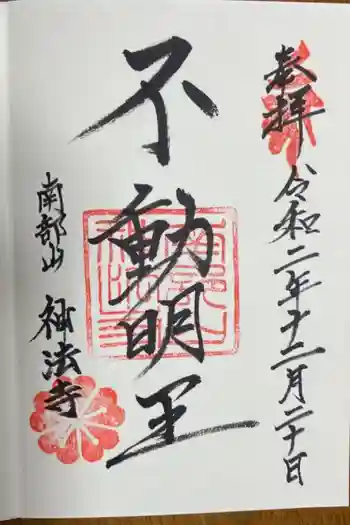 奉拝
令和二年十二月二十日
不動明王
南部山
神法寺